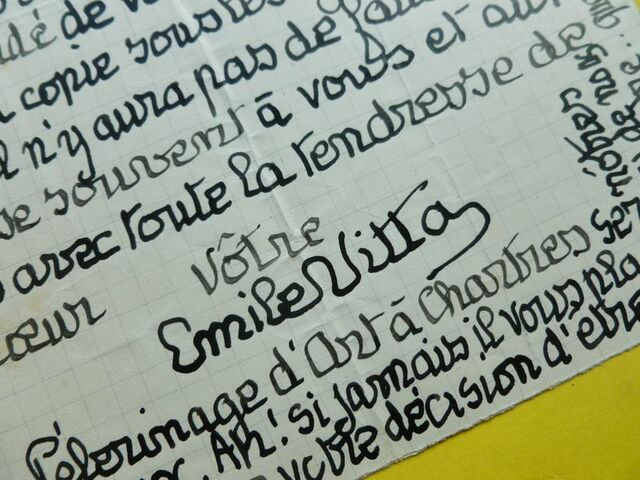 dé de
copie sous les
n'y aura pas de
souvent à vous et au
avec toute la tendresse de
cœur
Vôtre
Emile Vitta
Pélerinage d'Art à Chartres
Ah! si jamais, il vous pla
votre décision d'être